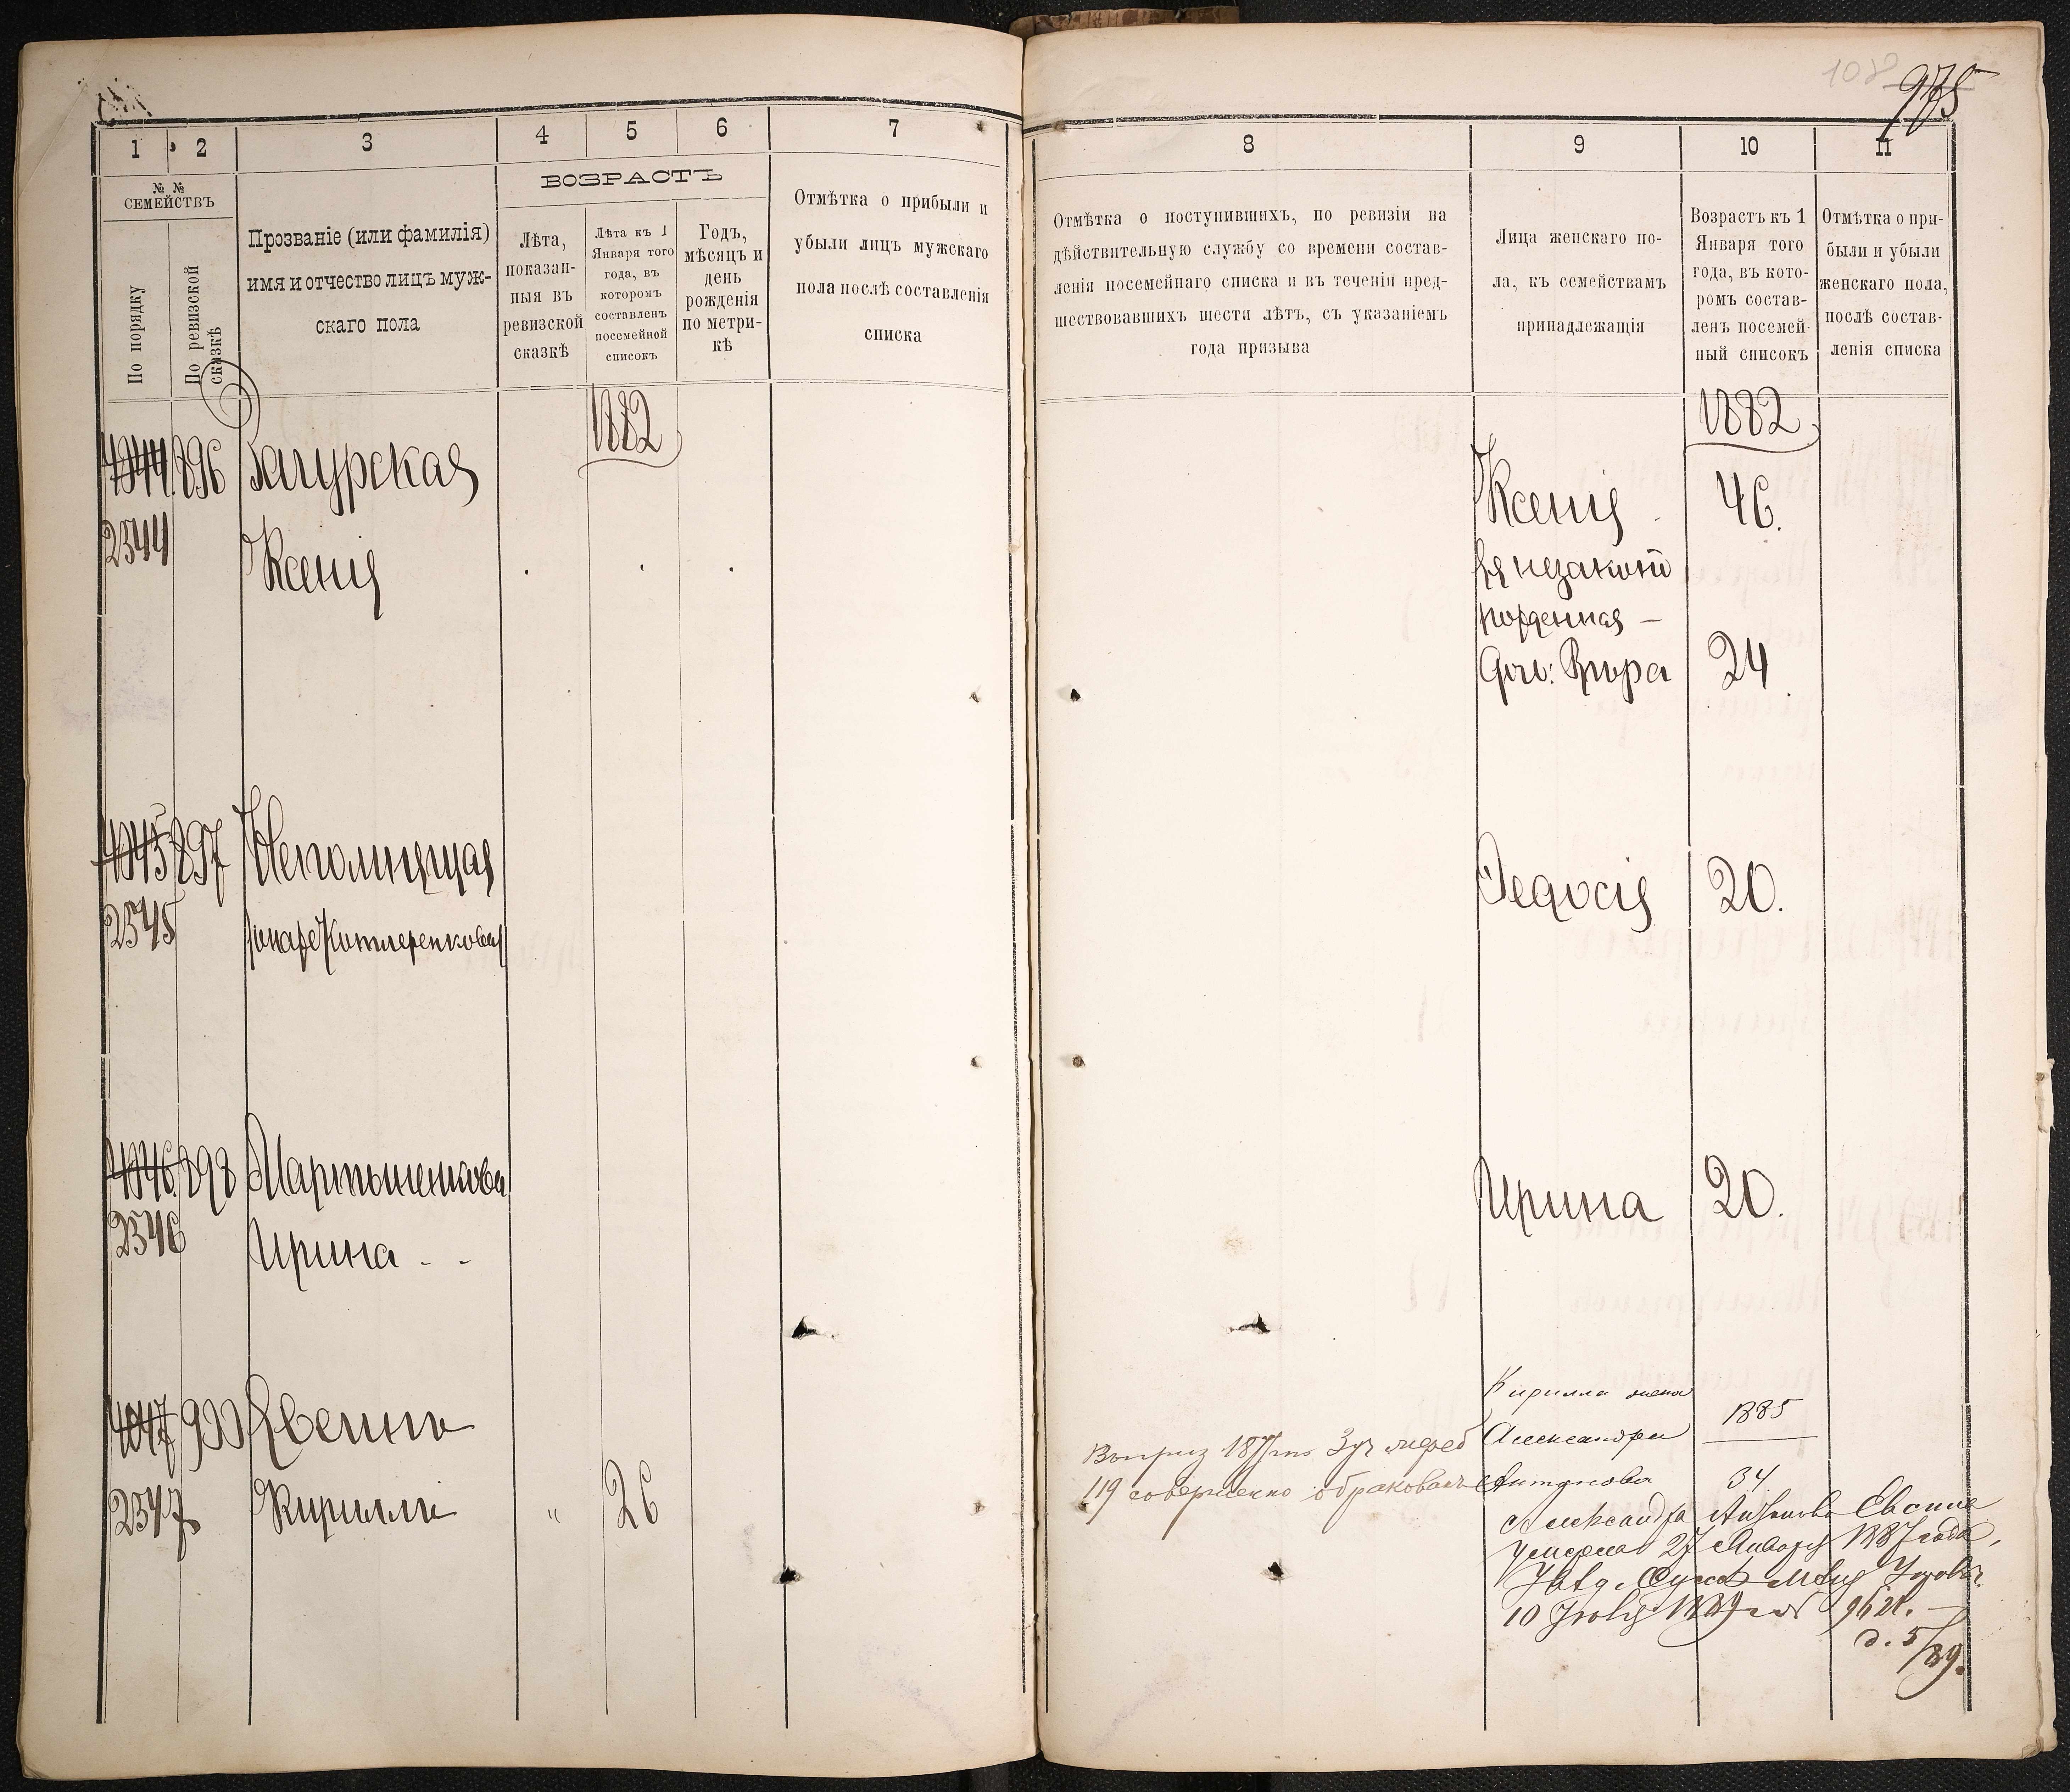 108
975
1 2 3 4 5 6 7
№ №
СЕМЕЙСТВЪ
По порядку
По ревизской сказкѣ
Прозваніе (или фамилія)
имя и отчество лицъ муж-
скаго пола
ВОЗРАСТЪ
Лѣта,
показан-
ныя въ
ревизской
сказкѣ
Лѣта къ 1
Января того
года, въ
которомъ
составленъ
посемейной
списокъ
Годъ,
мѣсяцъ и
день
рожденія
по метри-
кѣ
Отмѣтка о прибыли и
убыли лицъ мужскаго
пола послѣ составленія
списка
1882
896 Загурская
2344
Ксенія
897 Непомнящая
2345
898 Мартыненкова
2346
Ирина - -
900 Евсинъ
2347 Кириллъ " 26
8 9 10 11
Отмѣтка о поступившихъ, по ревизіи на
дѣйствительную службу со времени состав-
ленія посемейнаго списка и въ теченіи пред-
шествовавшихъ шести лѣтъ, съ указаніемъ
года призыва
Лица женскаго по-
ла, къ семействамъ
принадлежащія
Возрастъ къ 1
Января того
года, въ кото-
ромъ состав-
ленъ посемей-
ный списокъ
Отмѣтка о при-
были и убыли
женскаго пола,
послѣ состав-
ленія списка
1882
Ксенія 46.
Ея незакон
рожденная —
дочь: Вѣра 24
Федосія 20.
Ирина 20.
Кирилла жена
Александра 1885
Антонова 34
119 совершенно обракованъ
Александра Антонова Евсина
умерла 27 Января 1887 года,
10 Іюля 1889 г. № 9621. —
д. 5/89.